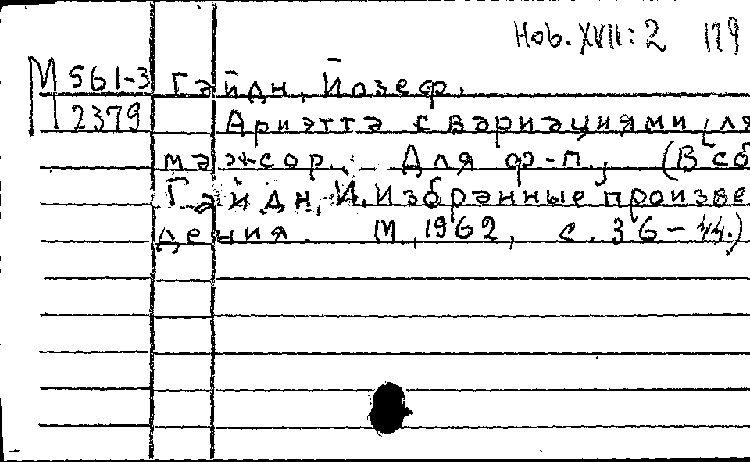 Hob. XVII: 2 119
М 561-3 Гайдн, Йозеф.
2379 Ариэтта с вариациями (ля
мажор. Для ф-п., (В сб
Гайдн, И. Избранные произве
дения. М., 1962, с. 36-44.)